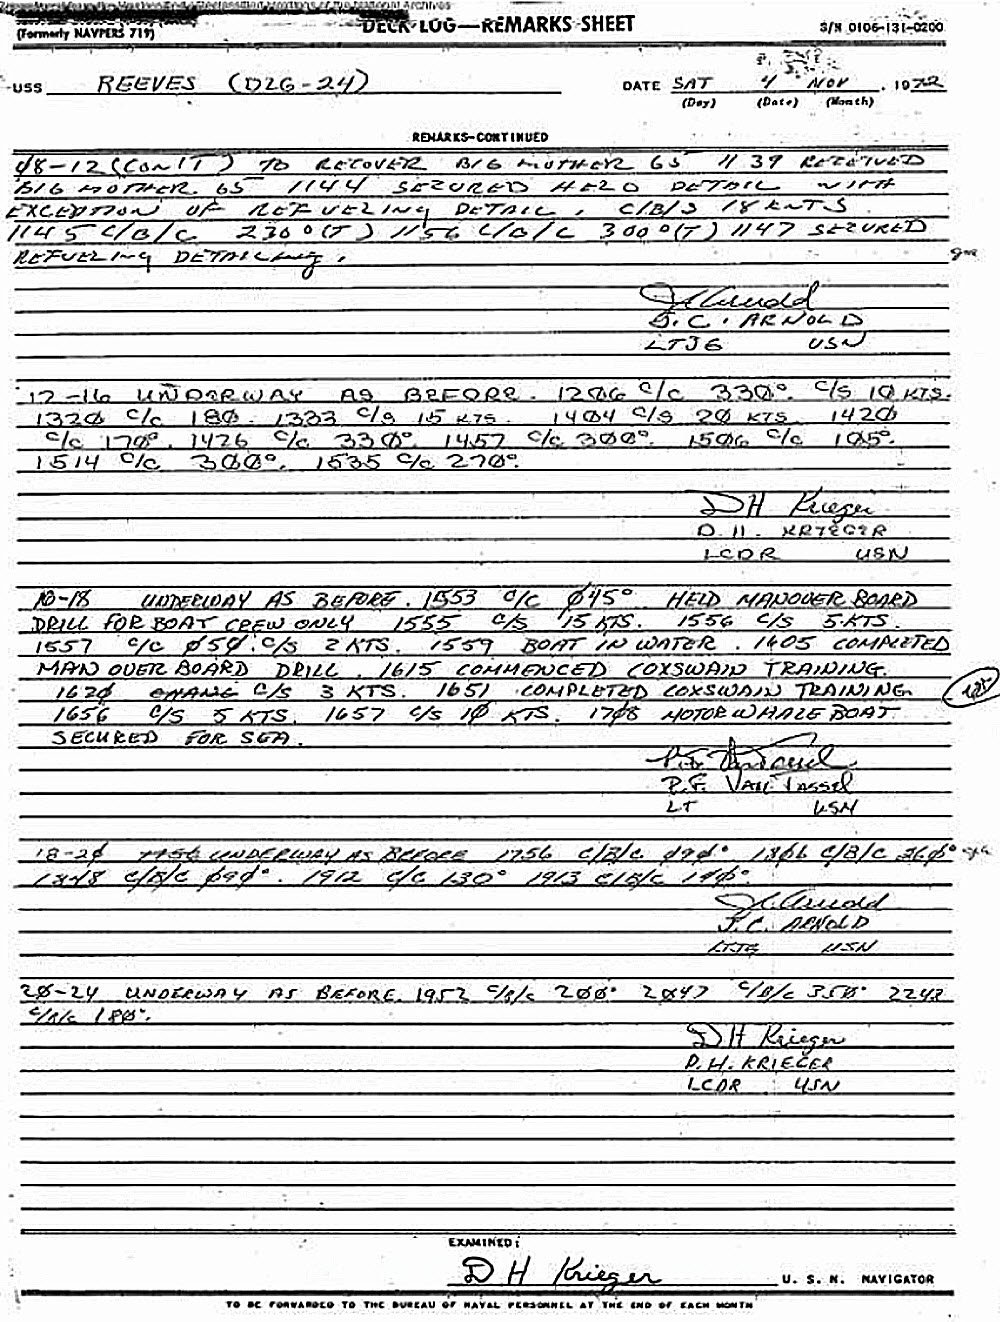 DECK LOG—REMARKS SHEET
(Formerly NAVPERS 719)
S/N 0106-131-0200
USS REEVES (DLG-24) DATE SAT 4 NOV , 1972
(Day) (Date) (Month)
REMARKS—CONTINUED
08-12 (CON'T) TO RECOVER BIG MOTHER 65 1139 RECEIVED
BIG MOTHER 65 1144 SECURED HELO DETAIL WITH
EXCEPTION OF REFUELING DETAIL, C/B/S 18 KNTS
1145 C/B/C 230°(T) 1156 C/B/C 300°(T) 1147 SECURED
REFUELING DETAIL.
J. C. ARNOLD
LTJG USN
12-16 UNDERWAY AS BEFORE. 1206 C/C 330°. C/S 10 KTS.
1320 C/C 180. 1333 C/S 15 KTS. 1404 C/S 20 KTS. 1420
C/C 170°. 1426 C/C 330°. 1457 C/C 300°. 1506 C/C 105°.
1514 C/C 300°. 1535 C/C 270°.
D H Krieger
D. H. KRIEGER
LCDR USN
16-18 UNDERWAY AS BEFORE. 1553 C/C 045° HELD MANOVER BOARD
DRILL FOR BOAT CREW ONLY 1555 C/S 15 KTS. 1556 C/S 5 KTS.
1557 C/C 050°. C/S 2 KTS. 1559 BOAT IN WATER. 1605 COMPLETED
MAN OVER BOARD DRILL. 1615 COMMENCED COXSWAIN TRAINING.
1620 C/S 3 KTS. 1651 COMPLETED COXSWAIN TRAINING.
1656 C/S 5 KTS. 1657 C/S 10 KTS. 1708 MOTOR WHALE BOAT
SECURED FOR SEA.
P.F. VAN TASSEL
LT USN
18-20 1756 UNDERWAY AS BEFORE 1756 C/B/C 090° 1806 C/B/C 260°
1848 C/B/C 090°. 1912 C/C 130° 1913 C/B/C 140°.
J.C. Arnold
J.C. ARNOLD
LTJG USN
20-24 UNDERWAY AS BEFORE. 1952 C/B/C 200° 2047 C/B/C 350° 2243
C/B/C 180°.
D H Krieger
D. H. KRIEGER
LCDR USN
EXAMINED:
D H Krieger U. S. N. NAVIGATOR
TO BE FORWARDED TO THE BUREAU OF NAVAL PERSONNEL AT THE END OF EACH MONTH